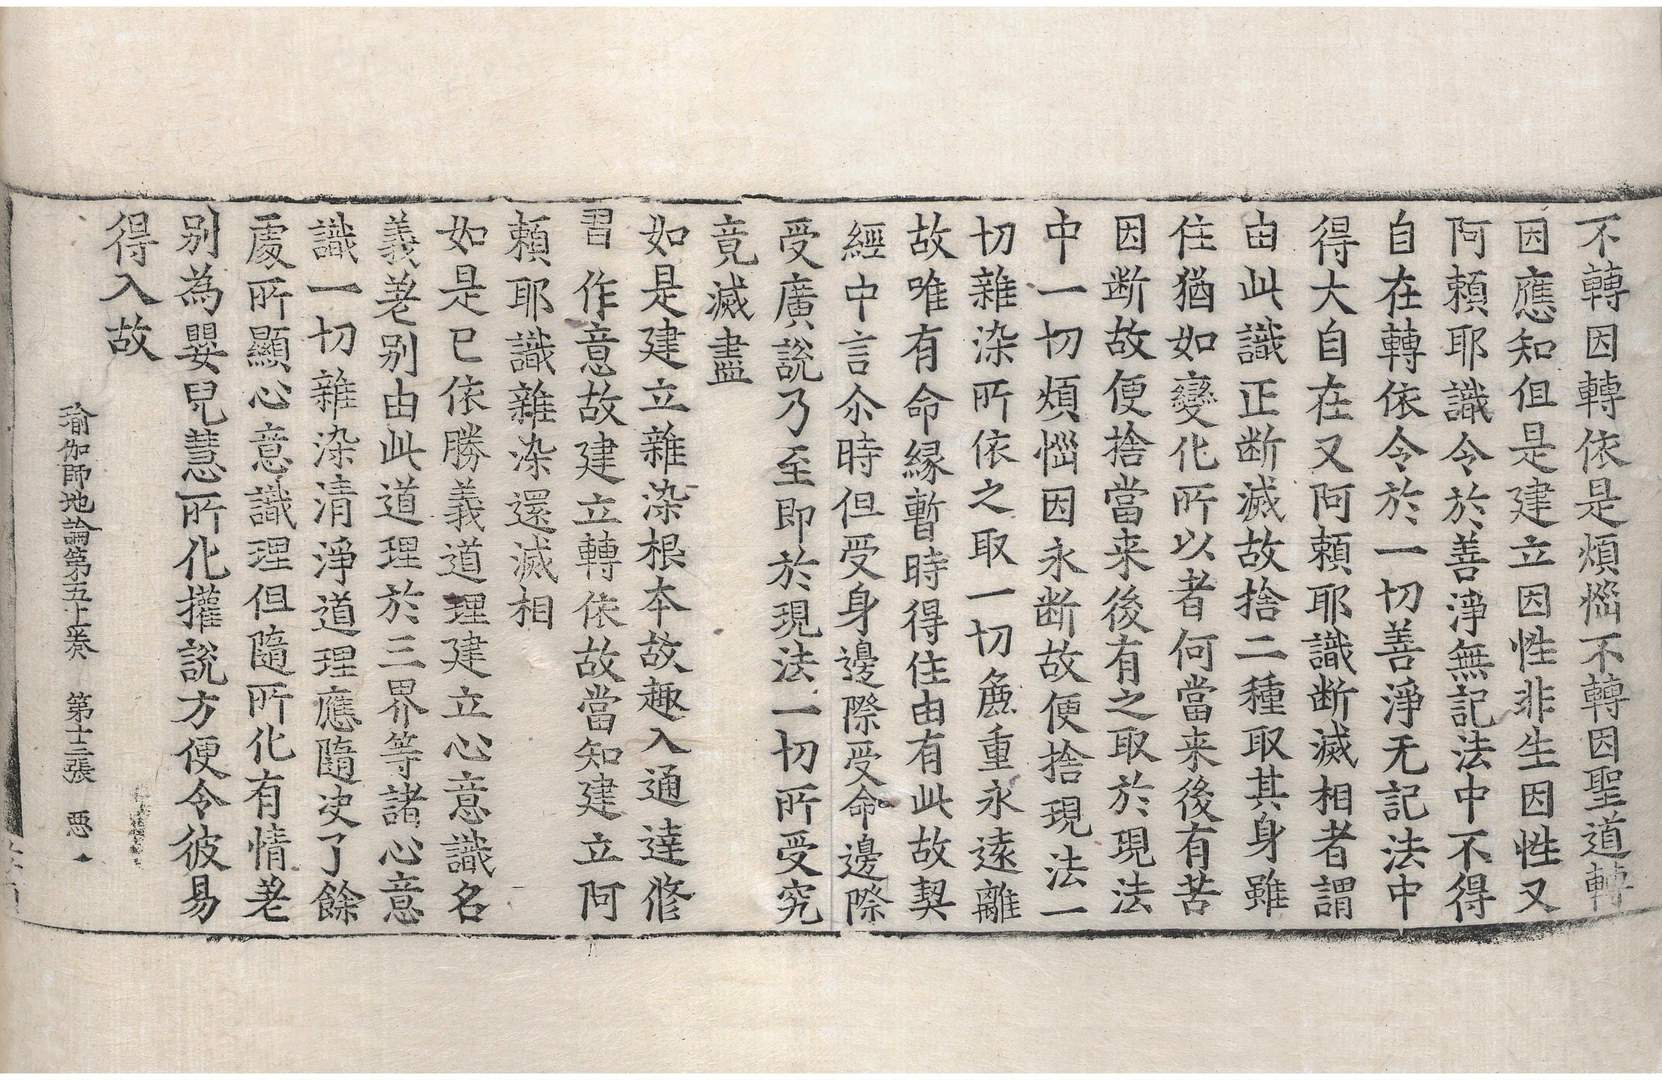 不轉因轉依是煩惱不轉因聖道轉
因應知但是建立因性非生因性又
阿頼耶識令於善淨無記法中不得
自在轉依令於一切善淨无記法中
得大自在又阿頼耶識断滅相者謂
由此識正断滅故捨二種取其身雖
住猶如變化所以者何當来後有苦
因断故便捨當来後有之取於現法
中一切煩惱因永断故便捨現法一
切雜染所依之取一切麁重永遠離
故唯有命縁暫時得住由有此故契
經中言尒時但受身邊際受命邊際
受廣說乃至即於現法一切所受究
竟滅盡
如是建立雜染根本故趣入通達修
習作意故建立轉依故當知建立阿
頼耶識雜染還滅相
如是已依勝義道理建立心意識名
義差别由此道理於三界等諸心意
識一切雜染清淨道理應隨决了餘
處所顯心意識理但隨所化有情差
别為嬰兒慧所化權說方便令彼易
得入故
瑜伽師地論第五十一卷 第十三張 惡